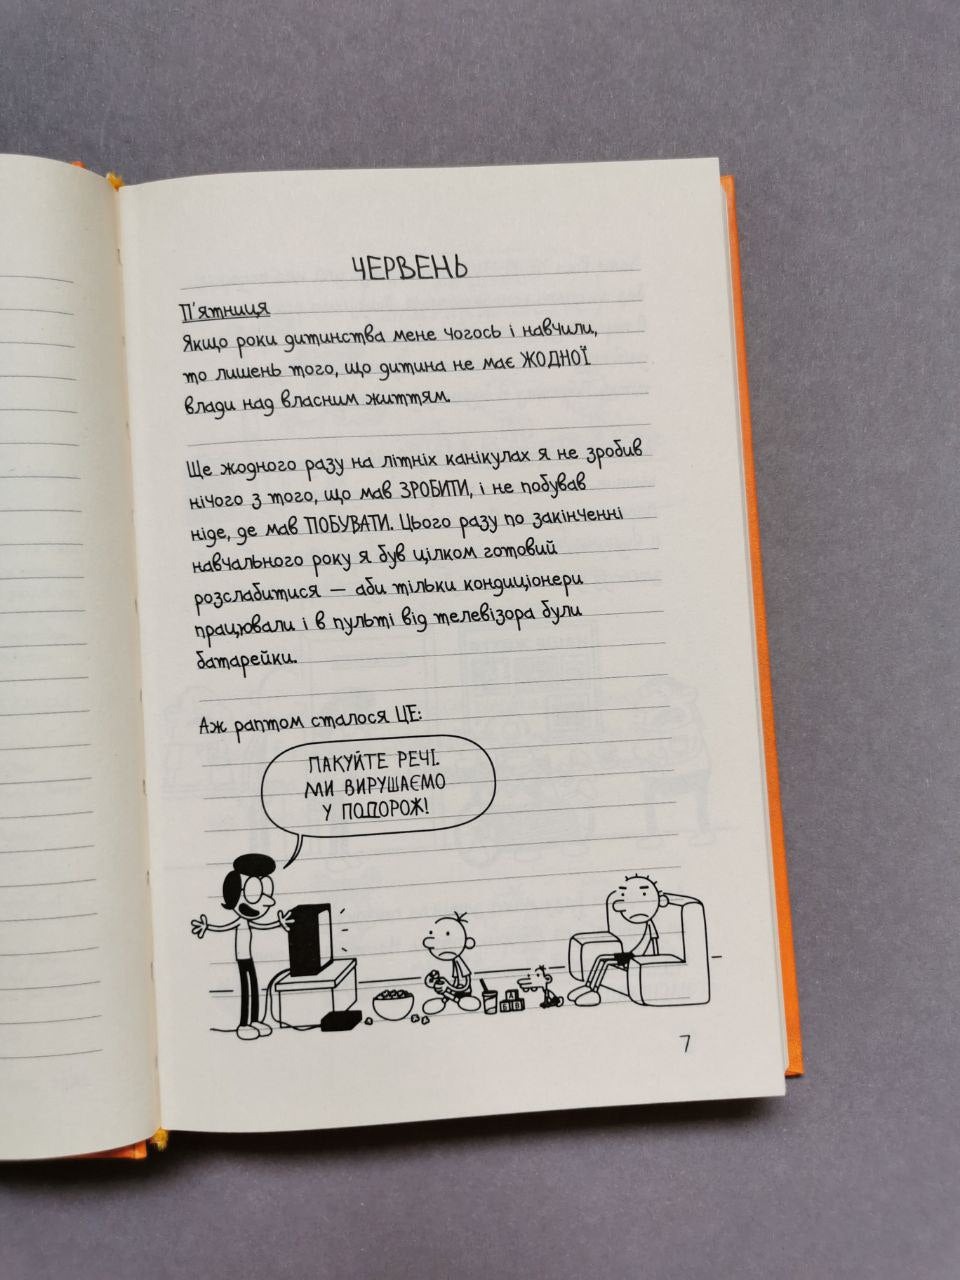 ЧЕРВЕНЬ
П'ятниця
Якщо роки дитинства мене чогось і навчили,
то лишень того, що дитина не має ЖОДНОЇ
влади над власним життям.
Ще жодного разу на літніх канікулах я не зробив
нічого з того, що мав ЗРОБИТИ, і не побував
ніде, де мав ПОБУВАТИ. Цього разу по закінченні
навчального року я був цілком готовий
розслабитися — аби тільки кондиціонери
працювали і в пульті від телевізора були
батарейки.
Аж раптом сталося ЦЕ:
ПАКУЙТЕ РЕЧІ.
МИ ВИРУШАЄМО
У ПОДОРОЖ!
7